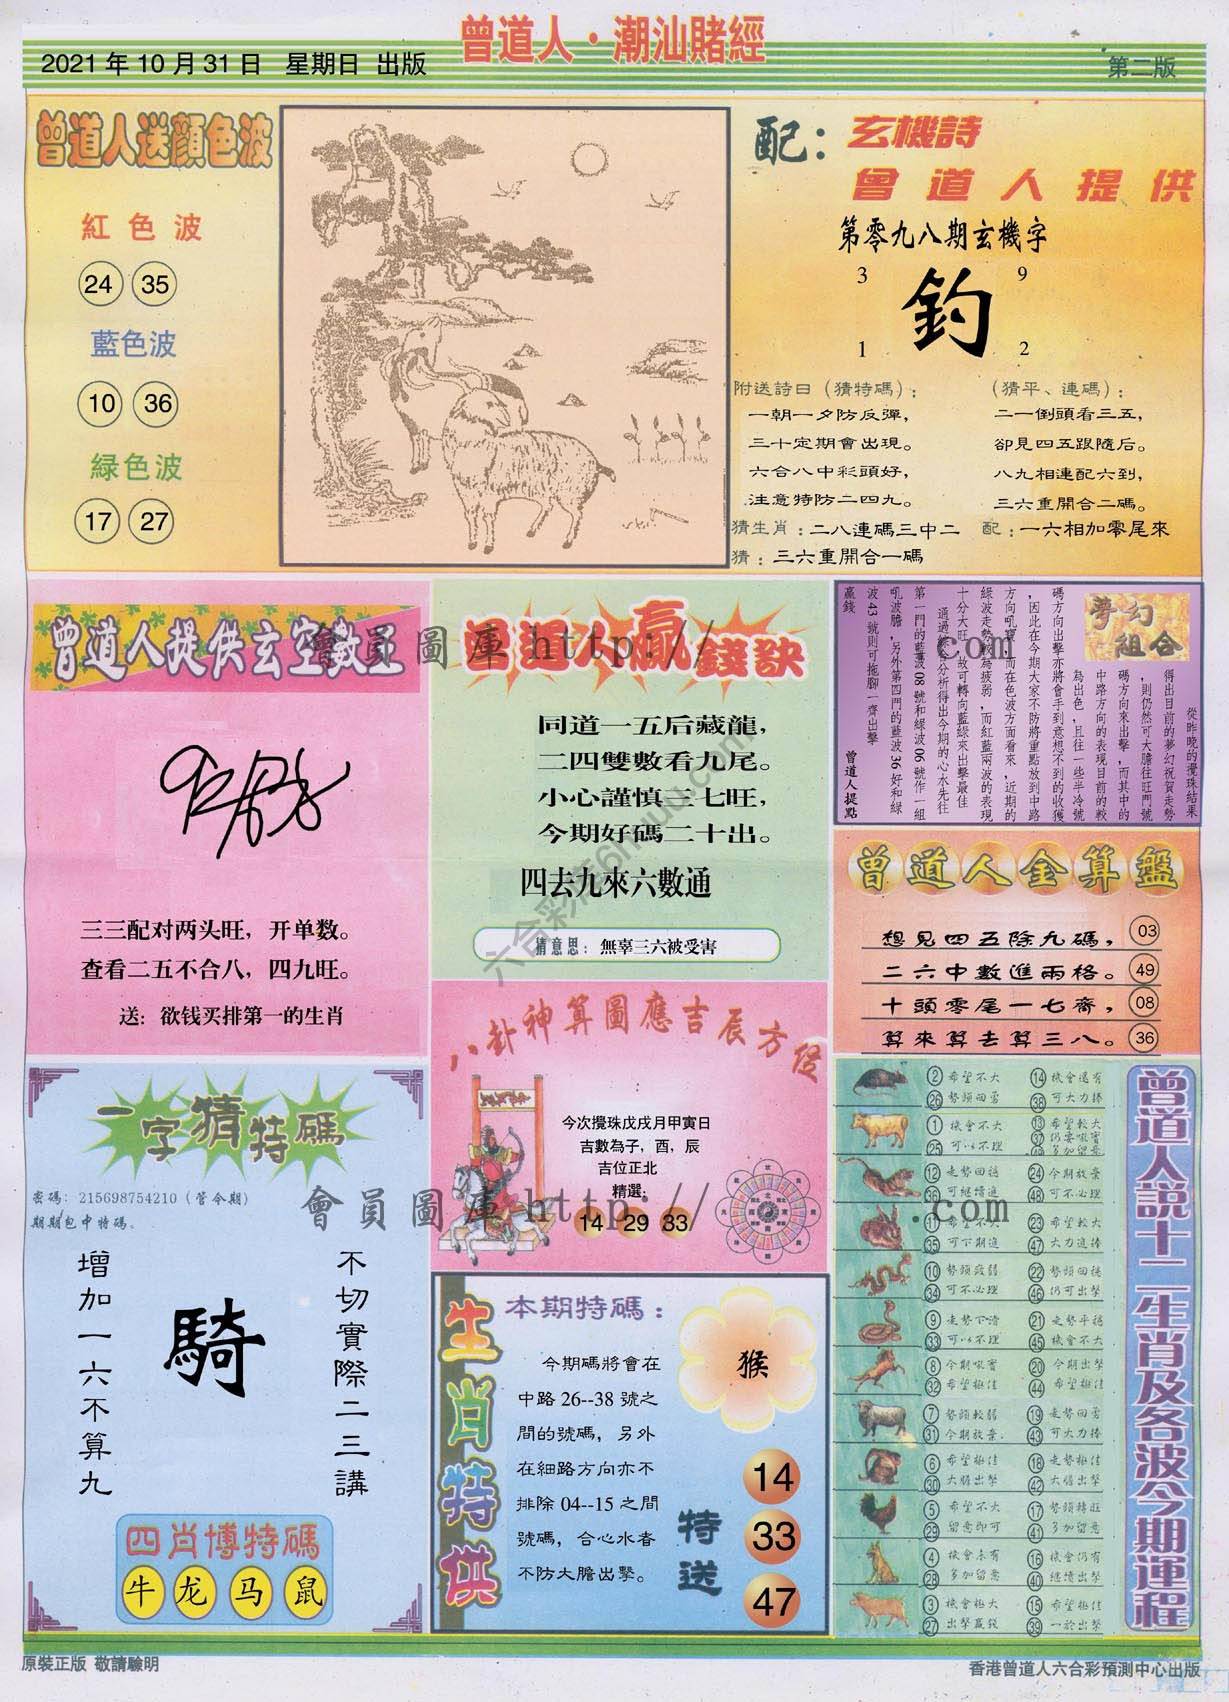 2021年10月31日 星期日 出版
曾道人·潮汕賭經
第二版
曾道人送顏色波
紅色波
24 35
藍色波
10 36
緑色波
17 27
配：玄機詩
曾道人提供
第零九八期玄機字
3 9
釣
1 2
附送詩曰（猜特碼）：
一朝一夕防反彈，
三十定期會出現。
六合八中彩頭好，
注意特防二四九。
（猜平、連碼）：
二一倒頭看三五，
卻見四五跟隨后。
八九相連配六到，
三六重開合二碼。
猜生肖：二八連碼三中二
配：一六相加零尾來
猜：三六重開合一碼
曾道人提供玄空數王
三三配对两头旺，开单数。
查看二五不合八，四九旺。
送：欲钱买排第一的生肖
曾道人贏錢訣
同道一五后藏龍，
二四雙數看九尾。
小心謹慎三七旺，
今期好碼二十出。
四去九來六數通
猜意思：無辜三六被受害
夢幻組合
從昨晚的攪珠結果
得出目前的夢幻祝賀走勢
，則仍然可大膽往旺門號
碼方向來出擊，而其中的
中路方向的表現目前的較
為出色，且往一些半冷號
碼方向出擊亦將會手到意想不到的收獲
，因此在今期大家不防將重點放到中路
方向吼寶，而在色波方面看來，近期的
綠波走勢較為疲弱，而紅藍兩波的表現
十分大旺，故可轉向藍綠來出擊最佳
通過綜合分析得出今期的心水先往
第一門的藍波08號和綠波06號作一組
吼波膽，另外第四門的藍波36好和綠
波43號則可拖腳一齊出擊
贏錢
曾道人提點
曾道人金算盤
想見四五除九碼， 03
二六中數進兩格。 49
十頭零尾一七齊， 08
算來算去算三八。 36
一字猜特碼
密碼：215698754210（管令期）
期期包中特碼。
不切實際二三講
騎
增加一六不算九
四肖博特碼
牛 龙 马 鼠
八卦神算圖應吉辰方位
今次攪珠戊戌月甲寅日
吉數為子，酉，辰
吉位正北
精選：
14 29 33
生肖特供
本期特碼：
猴
今期碼將會在
中路26--38號之
間的號碼，另外
在細路方向亦不
排除04--15之間
號碼，合心水者
不防大膽出擊。
特送
14
33
47
曾道人説十二生肖及各波今期運程
2 希望不大 14 機會還有
26 勢頭回勇 38 可大力捧
1 機會不大 13 希望較大
37 仍要吼實
25 可以不理 49 多加留意
12 走勢回穩 24 今期放棄
36 可繼續進 48 可不必理
11 希望不大 23 希望較大
35 可下期進 47 大力進捧
10 勢頭疲弱 22 勢頭回穩
34 可不必理 46 仍可出擊
9 走勢下滑 21 走勢平穩
33 可以不理 45 機會不大
8 今期吼實 20 今期出擊
32 希望極佳 44 希望極佳
7 勢頭較弱 19 走勢回勇
31 今期放棄 43 可大力捧
6 希望極佳 18 走勢極佳
30 大膽出擊 42 大膽出擊
5 希望不大 17 勢頭轉旺
29 留意即可 41 多加留意
4 機會未有 16 機會仍有
28 多加留意 40 繼續出擊
3 機會極大 15 希望極佳
27 出擊贏錢 39 一於出擊
原裝正版 敬請驗明
香港曾道人六合彩預測中心出版
會員圖庫 http:// .com
會員圖庫 http:// .com